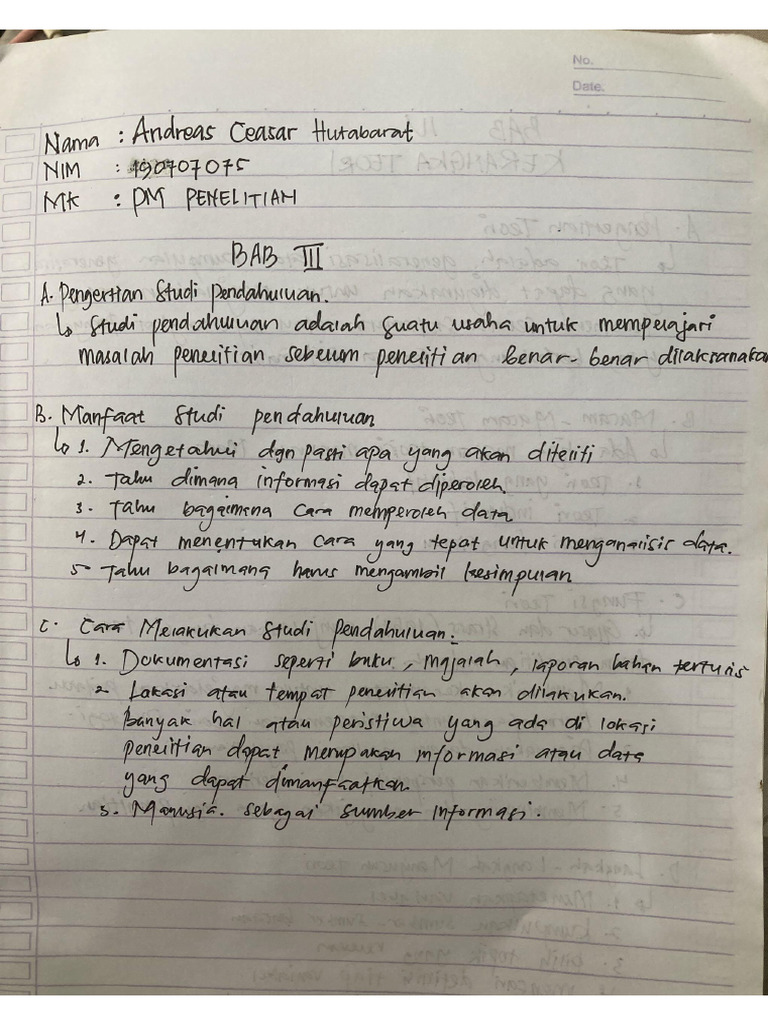 No.
Date.
Nama : Andreas Ceasar Hutabarat
NIM : 190707075
MK : PM PENELITIAN
BAB III
A. Pengertian Studi Pendahuluan.
↳ Studi pendahuluan adalah suatu usaha untuk mempelajari
masalah penelitian sebelum penelitian benar-benar dilaksanakan
B. Manfaat Studi pendahuluan
↳ 1. Mengetahui dgn pasti apa yang akan diteliti
2. Tahu dimana informasi dapat diperoleh
3. Tahu bagaimana cara memperoleh data
4. Dapat menentukan cara yang tepat untuk menganalisis data.
5 Tahu bagaimana harus mengambil kesimpulan
C. Cara Melakukan Studi Pendahuluan.
↳ 1. Dokumentasi seperti buku, majalah, laporan bahan tertulis
2. Lokasi atau tempat penelitian akan dilakukan.
Banyak hal atau peristiwa yang ada di lokasi
penelitian dapat merupakan informasi atau data
yang dapat dimanfaatkan.
3. Manusia. sebagai sumber informasi.